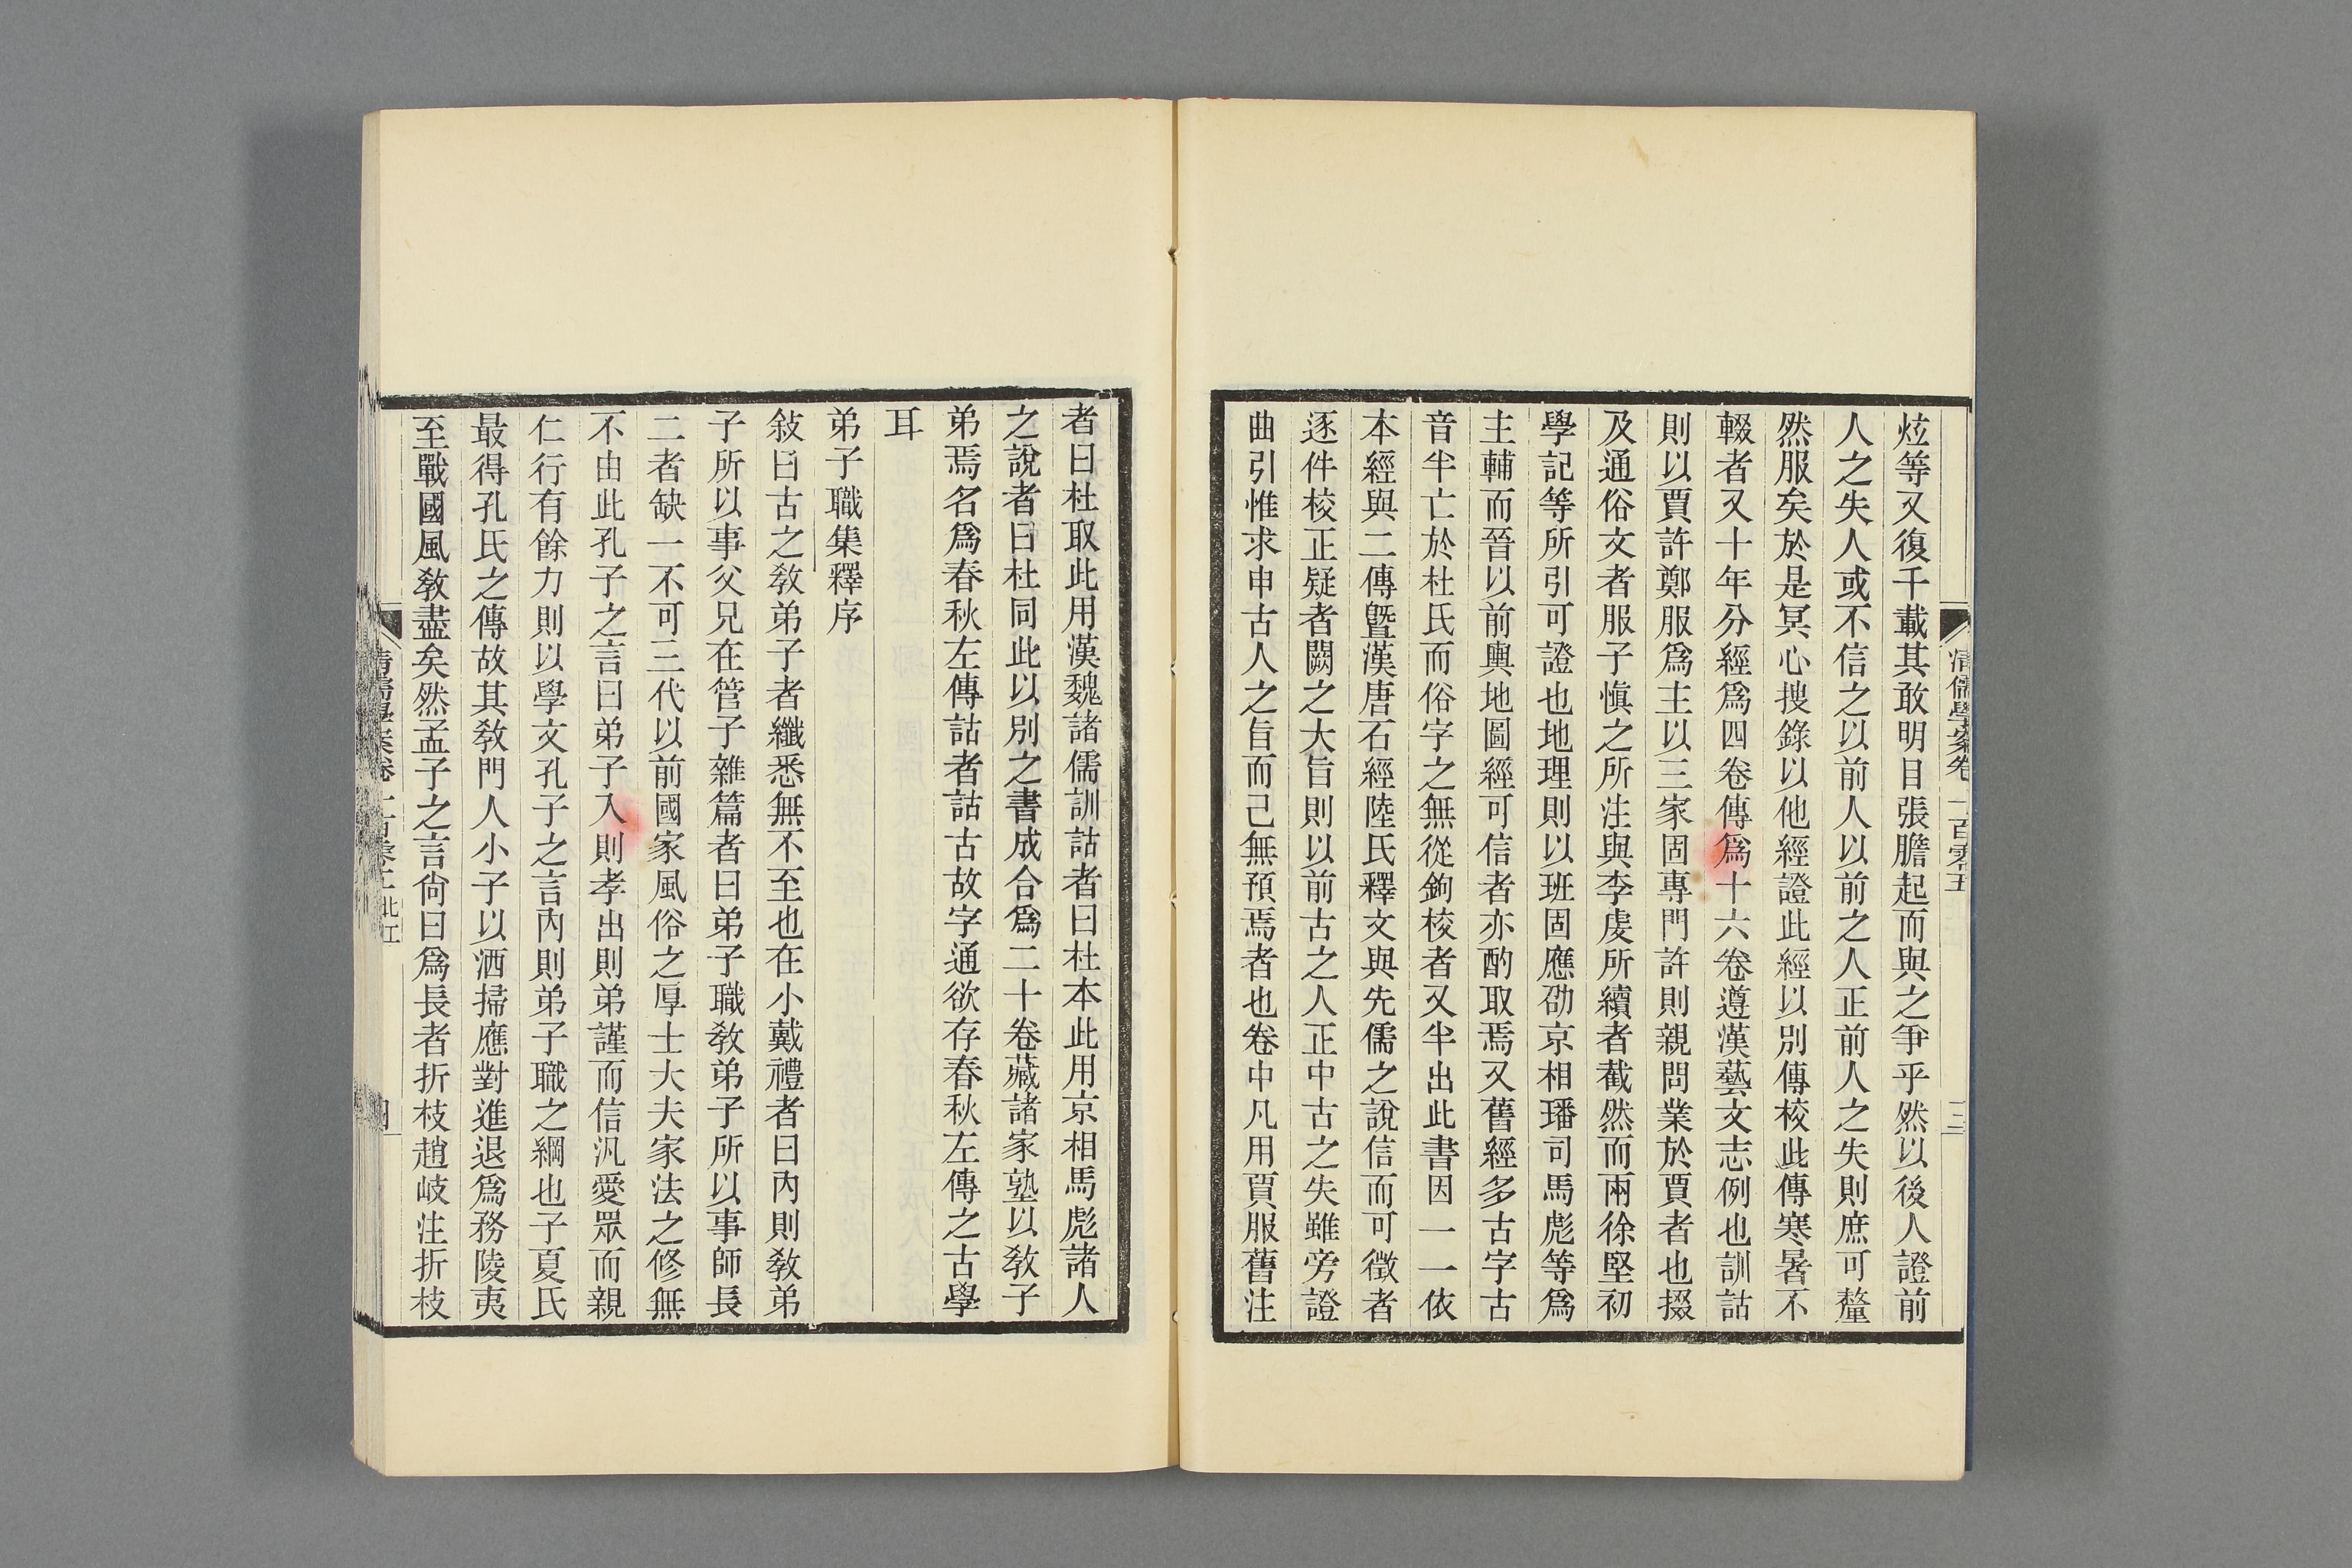 清儒學案卷一百零五
三
炫等又復千載其敢明目張膽起而與之爭乎然以後人證前
人之失人或不信之以前人以前之人正前人之失則庶可釐
然服矣於是冥心搜錄以他經證此經以別傳校此傳寒暑不
輟者又十年分經爲四卷傳爲十六卷遵漢藝文志例也訓詁
則以賈許鄭服爲主以三家固專門許則親問業於賈者也掇
及通俗文者服子愼之所注與李虔所續者截然而兩徐堅初
學記等所引可證也地理則以班固應劭京相璠司馬彪等爲
主輔而晉以前輿地圖經可信者亦酌取焉又舊經多古字古
音半亡於杜氏而俗字之無從鉤校者又半出此書因一一依
本經與二傳曁漢唐石經陸氏釋文與先儒之說信而可徵者
逐件校正疑者闕之大旨則以前古之人正中古之失雖旁證
曲引惟求申古人之旨而己無預焉者也卷中凡用賈服舊注
者曰杜取此用漢魏諸儒訓詁者曰杜本此用京相馬彪諸人
之說者曰杜同此以別之書成合爲二十卷藏諸家塾以敎子
弟焉名爲春秋左傳詁者詁古故字通欲存春秋左傳之古學
耳
弟子職集釋序
敍曰古之敎弟子者纖悉無不至也在小戴禮者曰內則敎弟
子所以事父兄在管子雜篇者曰弟子職敎弟子所以事師長
二者缺一不可三代以前國家風俗之厚士大夫家法之修無
不由此孔子之言曰弟子入則孝出則弟謹而信汎愛眾而親
仁行有餘力則以學文孔子之言內則弟子職之綱也子夏氏
最得孔氏之傳故其敎門人小子以洒掃應對進退爲務陵夷
至戰國風敎盡矣然孟子之言尙曰爲長者折枝趙岐注折枝
清儒學案卷一百零五 北江
四